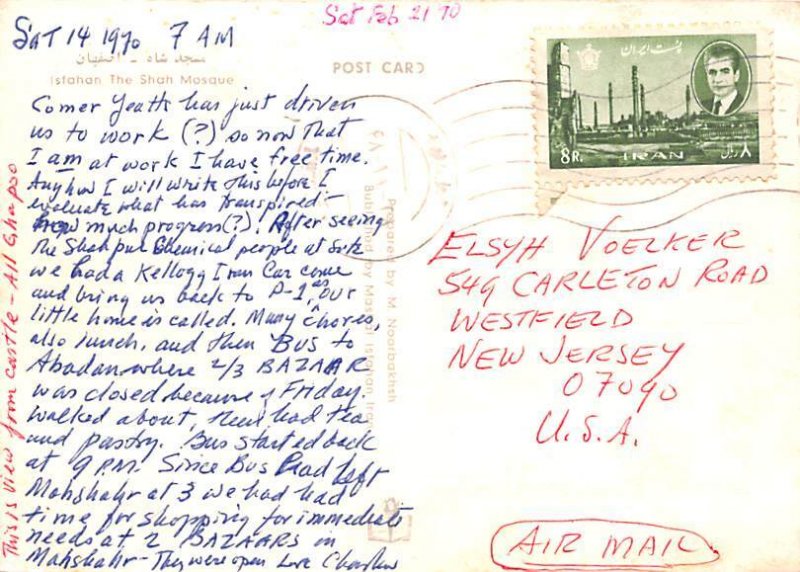 Sat Feb 21 70
SAT 14 1970 7 AM
مسجد شاه - اصفهان
Isfahan The Shah Mosque
POST CARD
Comer Yeatts has just driven
us to work (?) so now that
I am at work I have free time.
Anyhow I will write this before I
evaluate what has transpired -
how much progress (?). After seeing
the Shahpur Chemical people at site
we had a Kellogg Iran Car come
and bring us back to P-1, as our
little home is called. Many chores
also lunch, and then Bus to
Abadan where 2/3 BAZAAR
was closed because of Friday.
walked about, then had tea
and pastry. Bus started back
at 9 P.M. Since Bus had left
Mahshahr at 3 we had had
time for shopping for immediate
needs at 2 BAZAARS in
Mahshahr - They were open Love
This is view from castle - All Ghapso
Prepared by M Noorbachsh
Published by
پست ایران
8R.
IRAN
۸ ریال
ELSYH VOELKER
549 CARLETON ROAD
WESTFIELD
NEW JERSEY
07090
U.S.A.
AIR MAIL